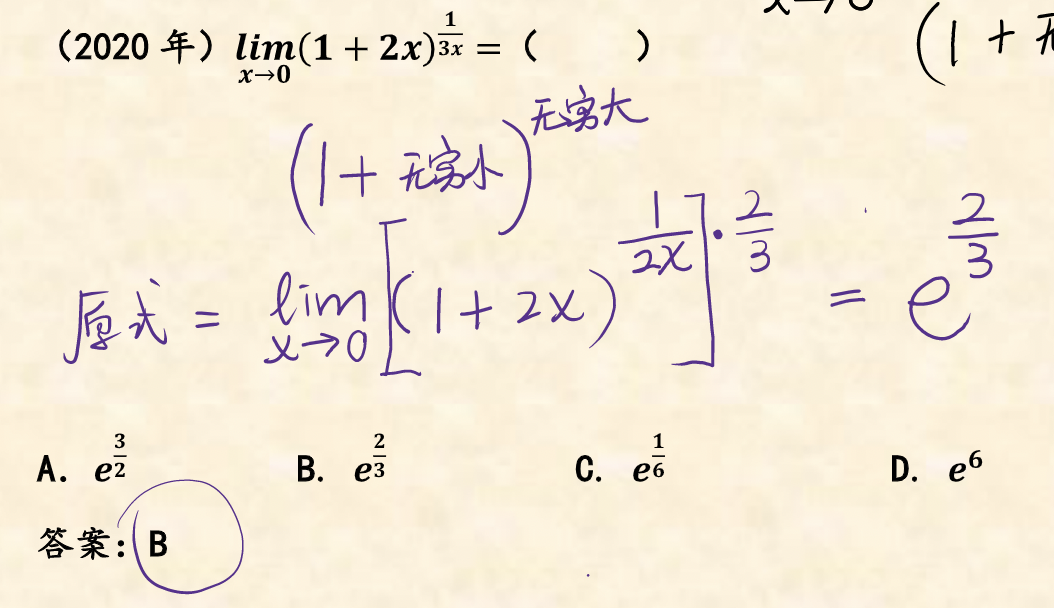 x→0
(2020 年) lim(1 + 2x)^{\frac{1}{3x}} = ( )
x→0
(1 + 无
(1 + 无穷小)^{无穷大}
原式 = lim [(1 + 2x)^{\frac{1}{2x}}]^{·\frac{2}{3}} = e^{\frac{2}{3}}
x→0
A. e^{\frac{3}{2}} B. e^{\frac{2}{3}} C. e^{\frac{1}{6}} D. e^6
答案: B